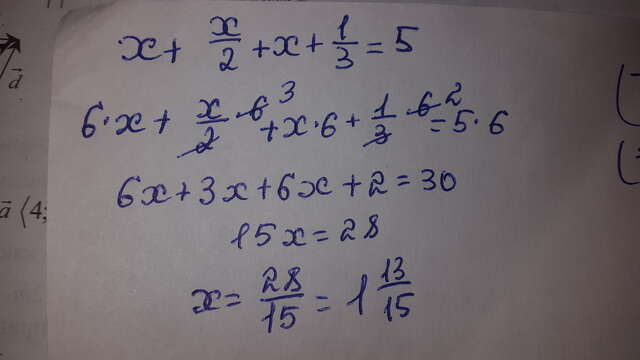 x + x/2 + x + 1/3 = 5
6·x + x/2·6 3 + x·6 + 1/3·6 2 = 5·6
6x + 3x + 6x + 2 = 30
15x = 28
x = 28/15 = 1 13/15
d
a (4;